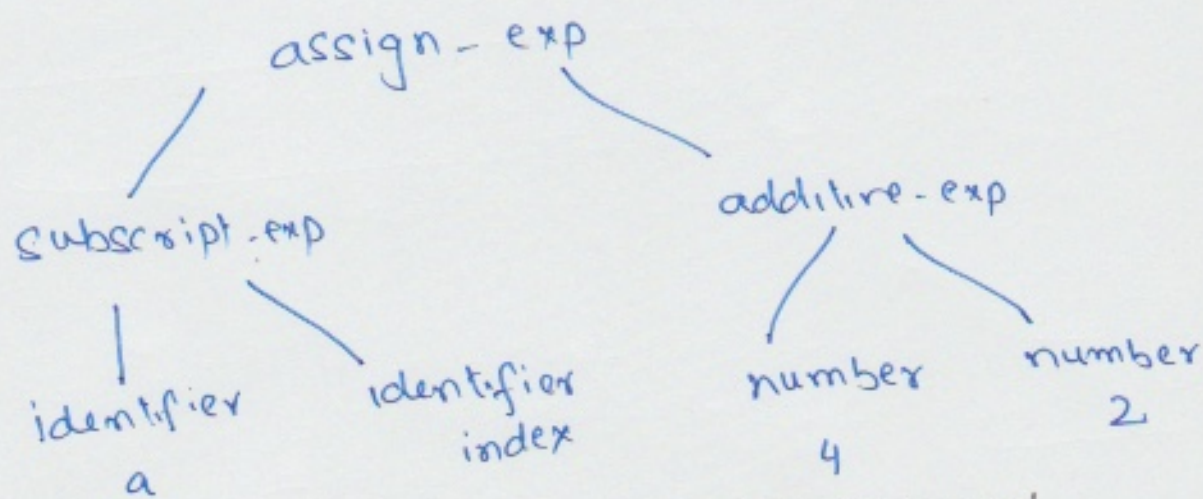 assign-exp
subscript-exp
additive-exp
identifier
identifier
number
number
a
index
4
2